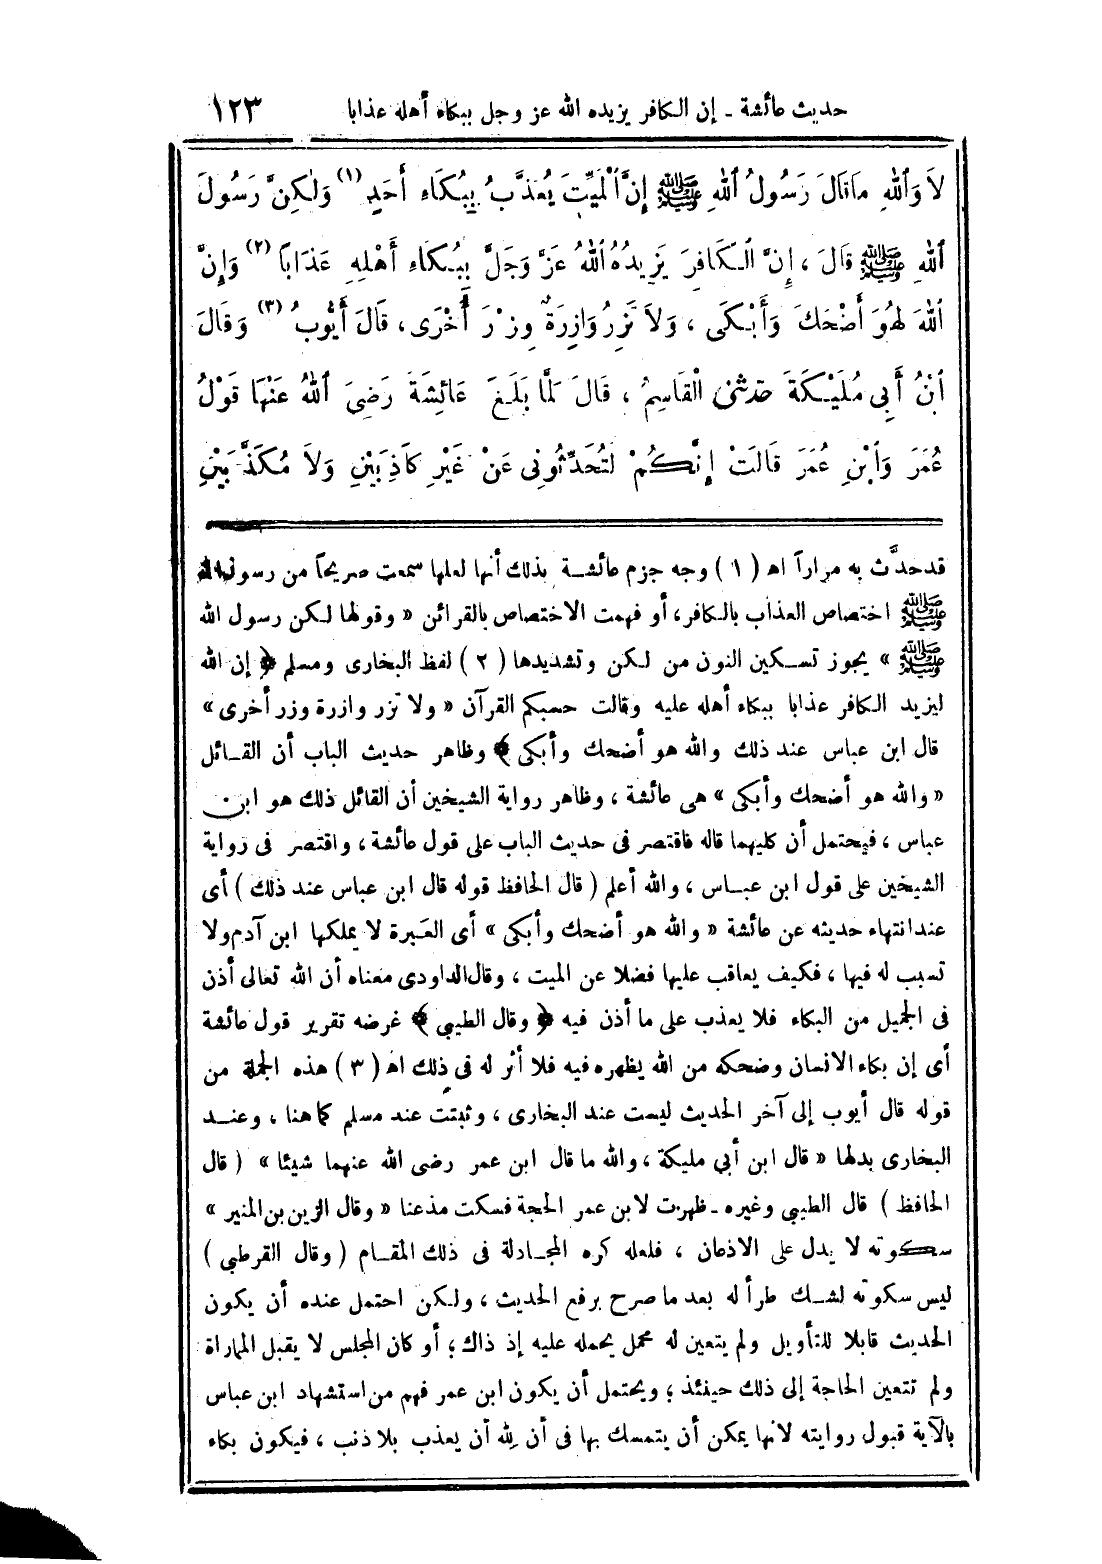 حديث عائشة ـ إن الكافر يزيده الله عز وجل ببكاء أهله عذابا ١٢٣
لاَ وَاللهِ مَا قَالَ رَسُولُ اللهِ ﷺ إِنَّ الْمَيِّتَ يُعَذَّبُ بِبُكَاءِ أَحَدٍ (١) وَلٰكِنَّ رَسُولَ
اللهِ ﷺ قَالَ ، إِنَّ الْكَافِرَ يَزِيدُهُ اللهُ عَزَّ وَجَلَّ بِبُكَاءِ أَهْلِهِ عَذَابًا (٢) وَإِنَّ
اللهَ لَهُوَ أَضْحَكَ وَأَبْكَى ، وَلاَ تَزِرُ وَازِرَةٌ وِزْرَ أُخْرَى ، قَالَ أَيُّوبُ (٣) وَقَالَ
ابْنُ أَبِي مُلَيْكَةَ حَدَّثَنِي الْقَاسِمُ ، قَالَ لَمَّا بَلَغَ عَائِشَةَ رَضِيَ اللهُ عَنْهَا قَوْلُ
عُمَرَ وَابْنِ عُمَرَ قَالَتْ إِنَّكُمْ لَتُحَدِّثُونِي عَنْ غَيْرِ كَاذِبَيْنِ وَلاَ مُكَذَّبَيْنِ
قد حدَّث به مراراً اهـ ( ١ ) وجه جزم عائشة بذلك أنها لعلها سمعت صريحاً من رسول الله
ﷺ اختصاص العذاب بالكافر، أو فهمت الاختصاص بالقرائن « وقولها لكن رسول الله
ﷺ » يجوز تسكين النون من لكن وتشديدها ( ٢ ) لفظ البخارى ومسلم ﴿ إن الله
ليزيد الكافر عذابا ببكاء أهله عليه وقالت حسبكم القرآن « ولا تزر وازرة وزر أخرى »
قال ابن عباس عند ذلك والله هو أضحك وأبكى ﴾ وظاهر حديث الباب أن القائل
« والله هو أضحك وأبكى » هى عائشة ، وظاهر رواية الشيخين أن القائل ذلك هو ابن
عباس ، فيحتمل أن كليهما قاله فاقتصر فى حديث الباب على قول عائشة ، واقتصر فى رواية
الشيخين على قول ابن عباس ، والله أعلم ( قال الحافظ قوله قال ابن عباس عند ذلك ) أى
عند انتهاء حديثه عن عائشة « والله هو أضحك وأبكى » أى العَبرة لا يملكها ابن آدم ولا
تسبب له فيها ، فكيف يعاقب عليها فضلا عن الميت ، وقال الداودى معناه أن الله تعالى أذن
فى الجميل من البكاء فلا يعذب على ما أذن فيه ﴿ وقال الطيبي ﴾ غرضه تقرير قول عائشة
أى إن بكاء الانسان وضحكه من الله يظهره فيه فلا أثر له فى ذلك اهـ ( ٣ ) هذه الجملة من
قوله قال أيوب إلى آخر الحديث ليست عند البخارى ، وثبتت عند مسلم كما هنا ، وعند
البخارى بدلها « قال ابن أبي مليكة ، والله ما قال ابن عمر رضى الله عنهما شيئا » ( قال
الحافظ ) قال الطيبي وغيره ـ ظهرت لابن عمر الحجة فسكت مذعنا « وقال الزين بن المنير »
سكوته لا يدل على الاذعان ، فلعله كره المجادلة فى ذلك المقام ( وقال القرطبي )
ليس سكوته لشك طرأ له بعد ما صرح برفع الحديث ، ولكن احتمل عنده أن يكون
الحديث قابلا للتأويل ولم يتعين له محمل يحمله عليه إذ ذاك ؛ أو كان المجلس لا يقبل المماراة
ولم تتعين الحاجة إلى ذلك حينئذ ؛ ويحتمل أن يكون ابن عمر فهم من استشهاد ابن عباس
بالآية قبول روايته لانها يمكن أن يتمسك بها فى أن لله أن يعذب بلا ذنب ، فيكون بكاء